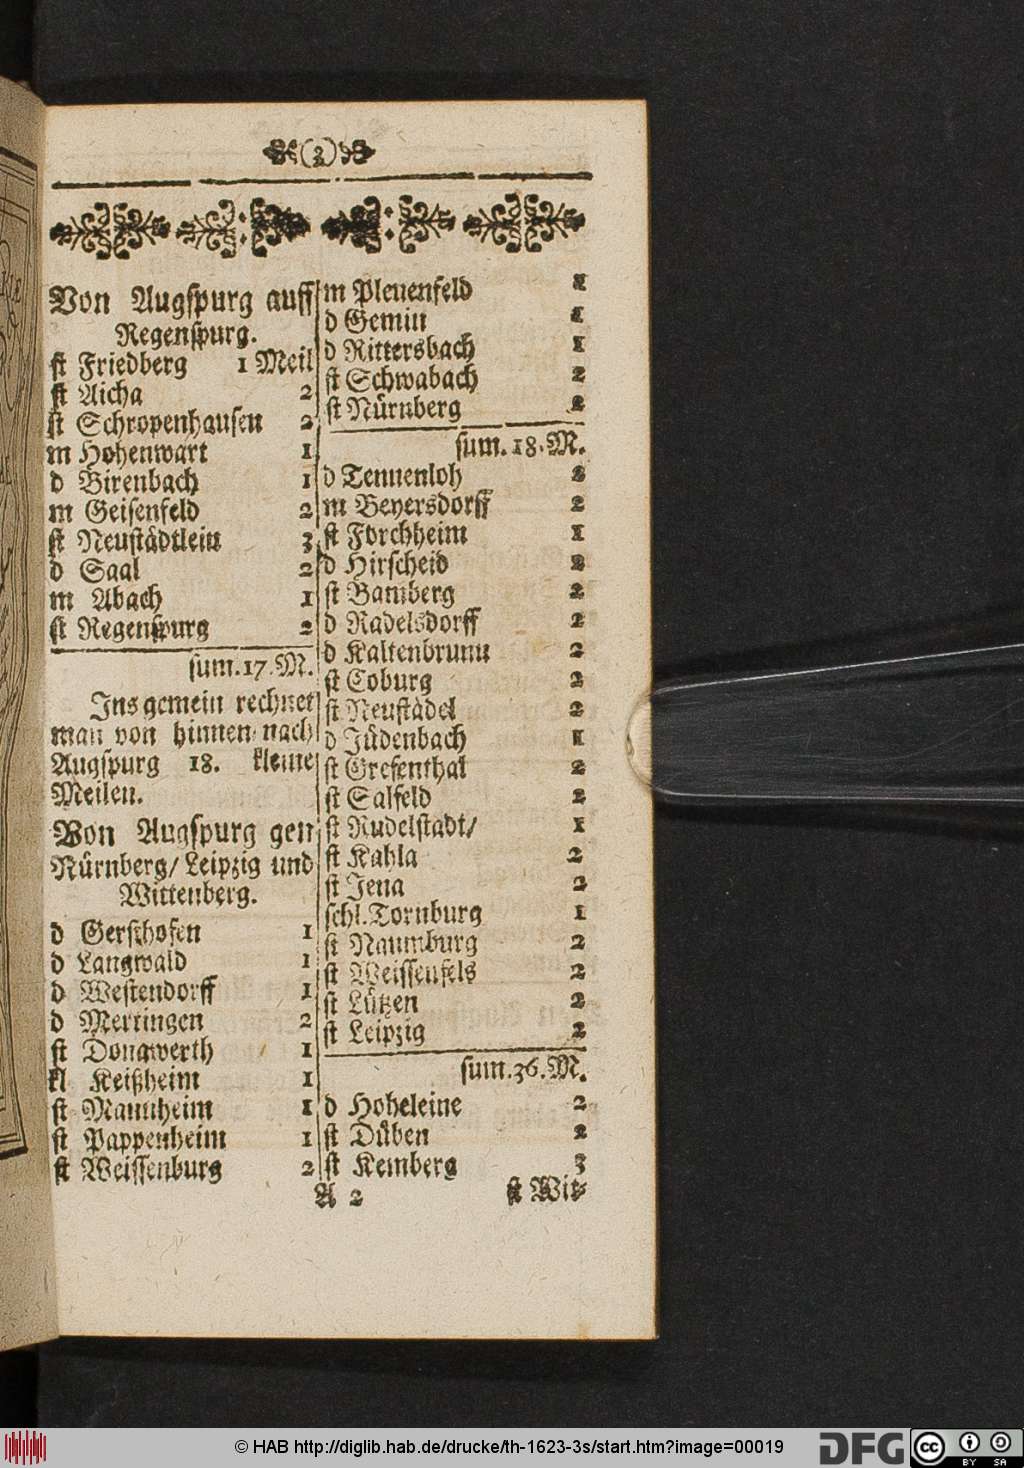 (3)
Von Augspurg auff
Regenspurg.
st Friedberg 1 Meil
st Aicha 2
st Schropenhausen 2
m Hohenwart 1
d Birenbach 1
m Geisenfeld 2
st Neustådtlein 3
d Saal 2
m Abach 1
st Regenspurg 2
sum. 17. M.
Ins gemein rechnet
man von hinnen nach
Augspurg 18. kleine
Meilen.
Von Augspurg gen
Nürnberg/ Leipzig und
Wittenberg.
d Gersthofen 1
d Langwald 1
d Westendorff 1
d Mertingen 2
st Donawerth 1
kl Keißheim 1
st Mannheim 1
st Pappenheim 1
st Weissenburg 2
m Pleuenfeld 1
d Gemün 1
d Rittersbach 1
st Schwabach 2
st Nürnberg 2
sum. 18. M.
d Tennenloh 2
m Beyersdorff 2
st Forchheim 1
d Hirscheid 2
st Bamberg 2
d Radelsdorff 2
d Kaltenbrunn 2
st Coburg 2
st Neustådel 2
d Jüdenbach 1
st Grefenthal 2
st Salfeld 2
st Rudelstadt/ 1
st Kahla 2
st Jena 2
schl. Tornburg 1
st Naumburg 2
st Weissenfels 2
st Lützen 2
st Leipzig 2
sum. 36. M.
d Hoheleine 2
st Düben 2
st Kemberg 3
A 2 st Wit-
© HAB http://diglib.hab.de/drucke/th-1623-3s/start.htm?image=00019
DFG
cc BY SA